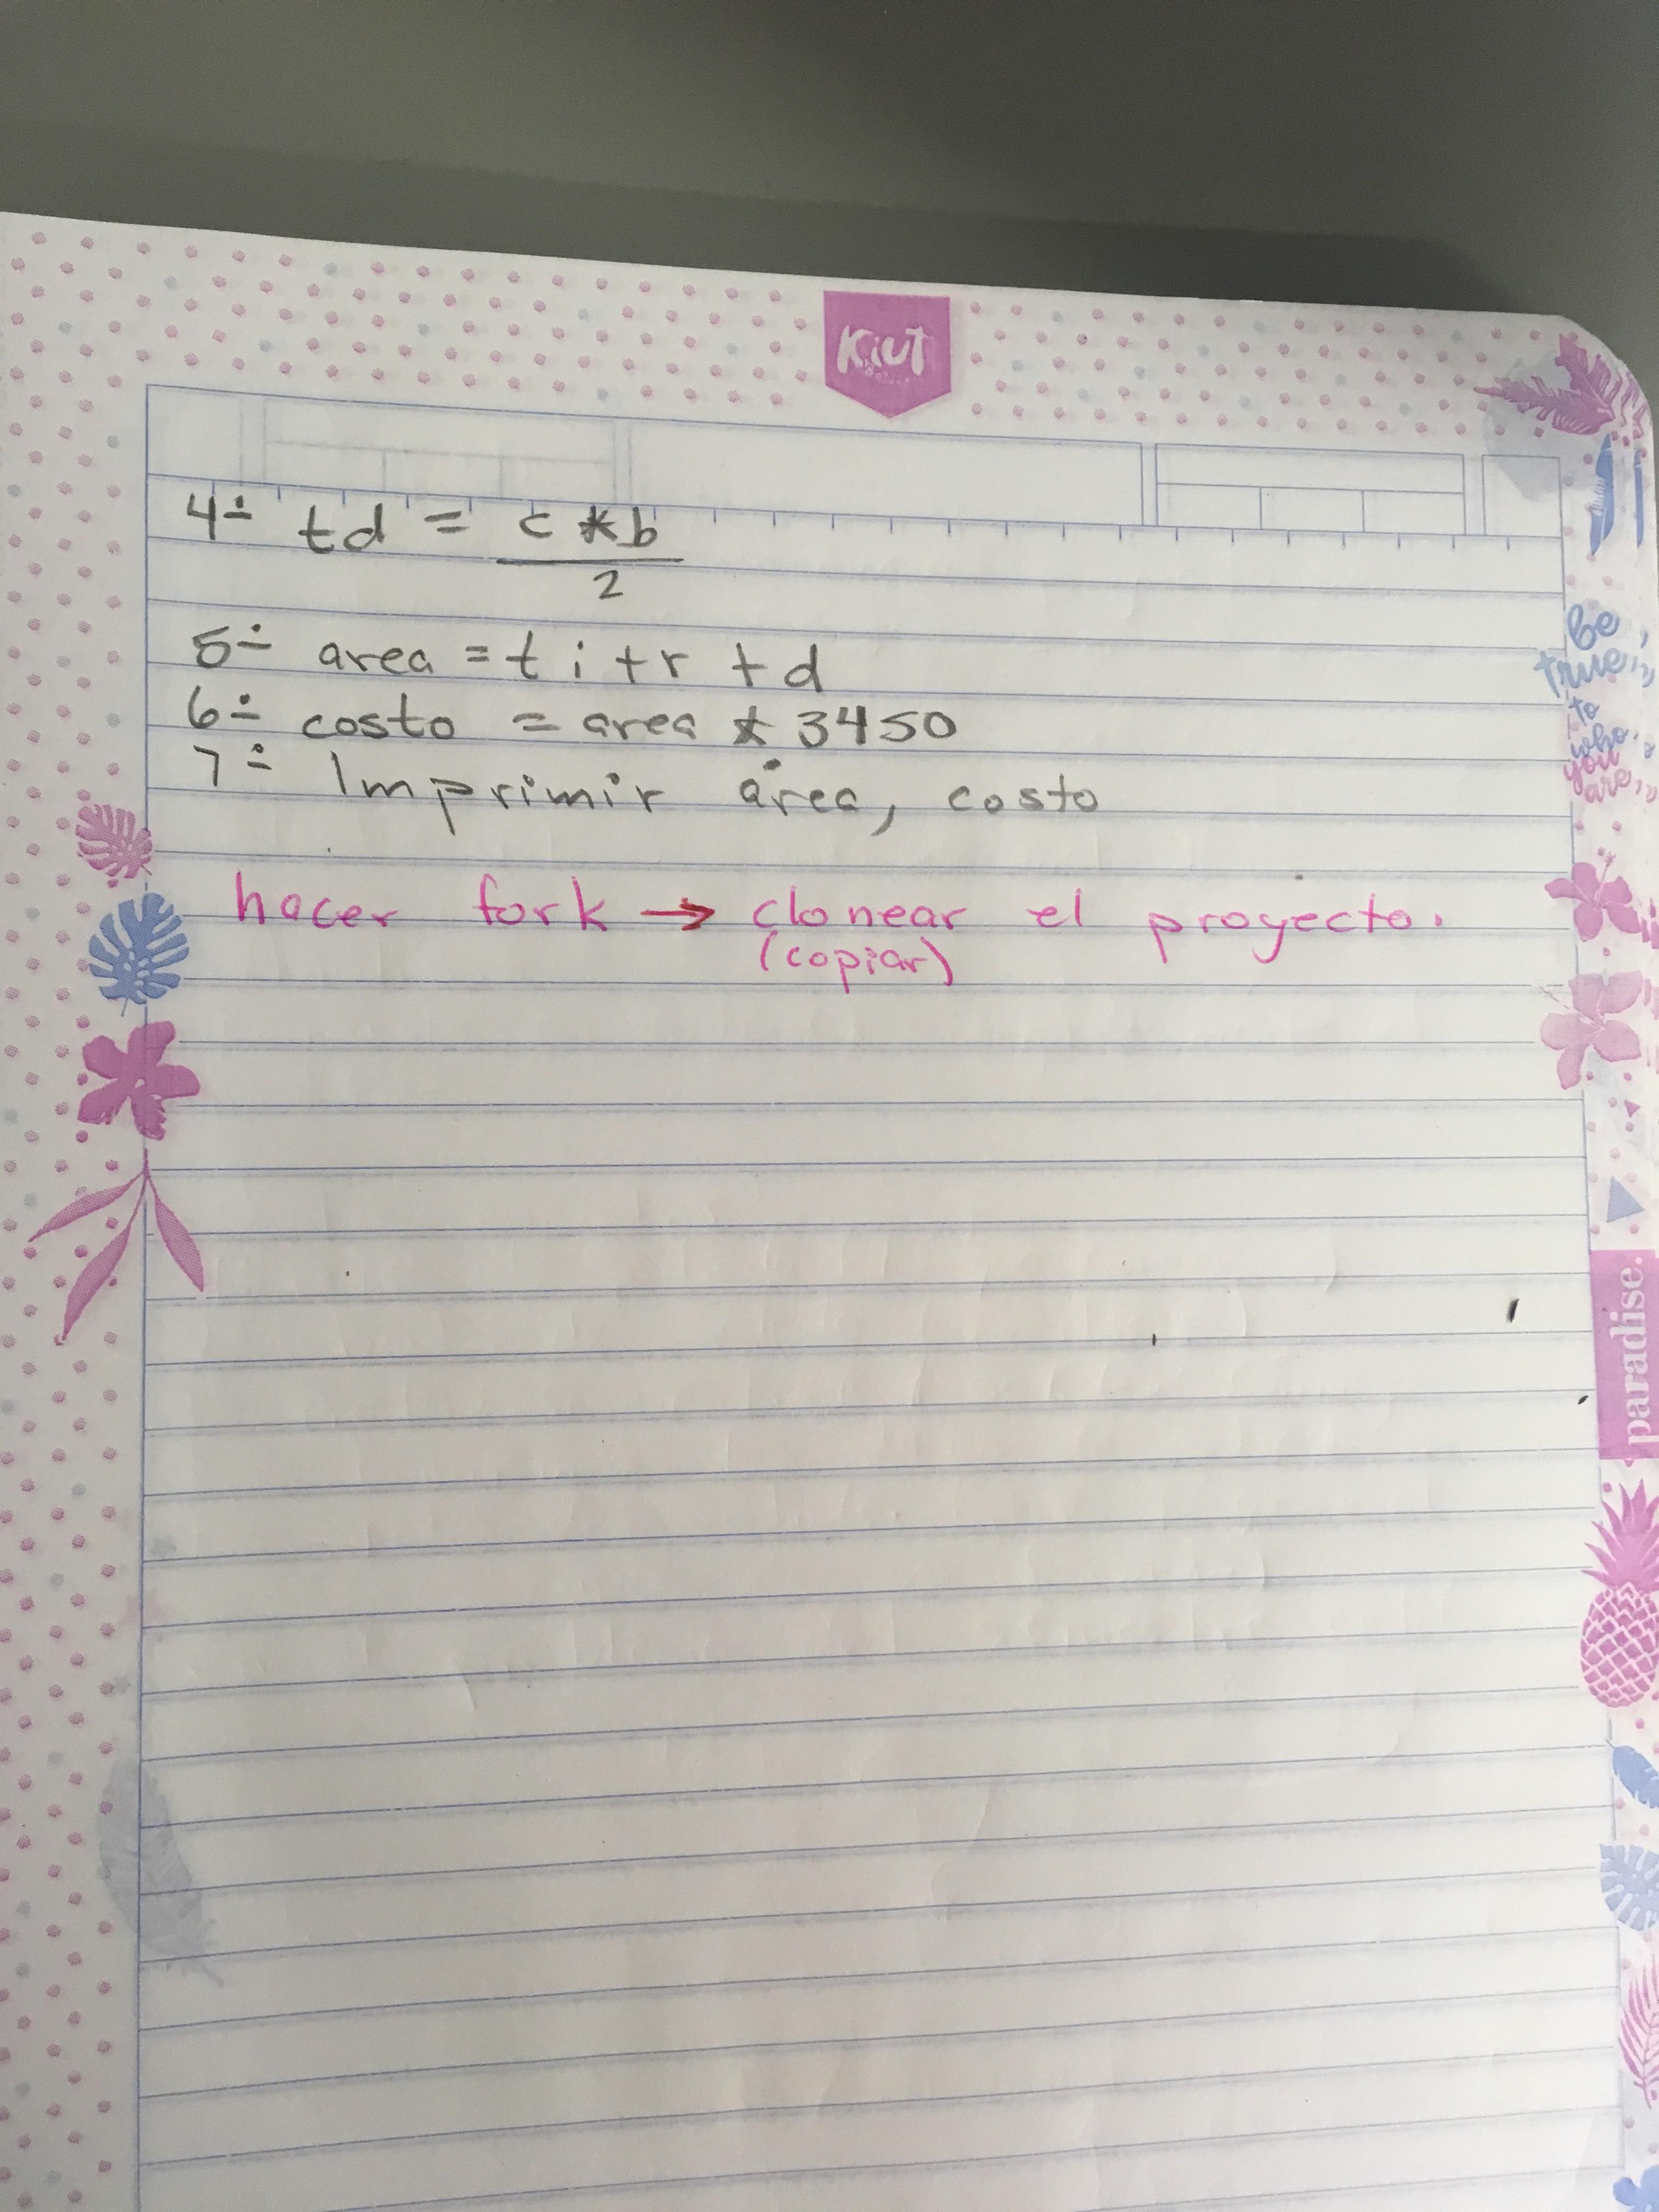 Kiut
4÷ td = c * b
2
5÷ area = ti + r + d
6÷ costo = area * 3450
7÷ Imprimir area, costo
hacer fork → clonear el proyecto.
(copiar)
be
true
to
who
you
are
paradise.